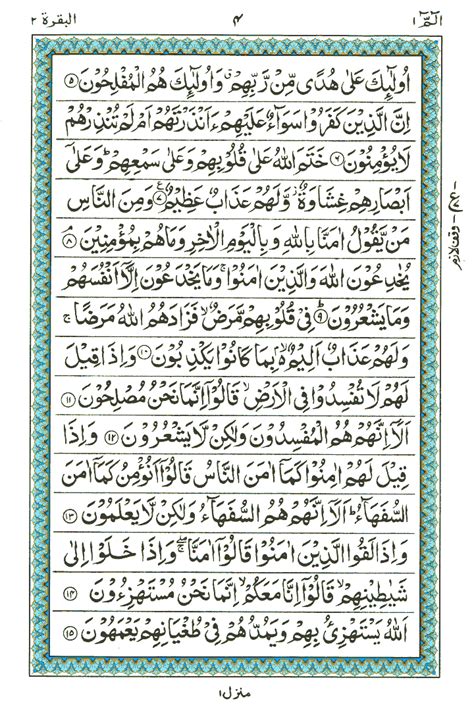 البقرة ٢ ۴ الٓمّٓ ١
اُولٰٓئِكَ عَلٰى هُدًى مِّنْ رَّبِّهِمْ ۙ وَاُولٰٓئِكَ هُمُ الْمُفْلِحُوْنَ ۝۵
اِنَّ الَّذِيْنَ كَفَرُوْا سَوَآءٌ عَلَيْهِمْ ءَاَنْذَرْتَهُمْ اَمْ لَمْ تُنْذِرْهُمْ
لَا يُؤْمِنُوْنَ ۝۶ خَتَمَ اللّٰهُ عَلٰى قُلُوْبِهِمْ وَعَلٰى سَمْعِهِمْ ؕ وَعَلٰٓى
اَبْصَارِهِمْ غِشَاوَةٌ ۫ وَّلَهُمْ عَذَابٌ عَظِيْمٌ ۝۷ وَمِنَ النَّاسِ
مَنْ يَّقُوْلُ اٰمَنَّا بِاللّٰهِ وَبِالْيَوْمِ الْاٰخِرِ وَمَا هُمْ بِمُؤْمِنِيْنَ ۝۸
يُخٰدِعُوْنَ اللّٰهَ وَالَّذِيْنَ اٰمَنُوْا ۚ وَمَا يَخْدَعُوْنَ اِلَّاۤ اَنْفُسَهُمْ
وَمَا يَشْعُرُوْنَ ۝۹ فِيْ قُلُوْبِهِمْ مَّرَضٌ ۙ فَزَادَهُمُ اللّٰهُ مَرَضًا ۚ
وَلَهُمْ عَذَابٌ اَلِيْمٌ ۢ ۙ بِمَا كَانُوْا يَكْذِبُوْنَ ۝۱۰ وَاِذَا قِيْلَ
لَهُمْ لَا تُفْسِدُوْا فِي الْاَرْضِ ۙ قَالُوْۤا اِنَّمَا نَحْنُ مُصْلِحُوْنَ ۝۱۱
اَلَاۤ اِنَّهُمْ هُمُ الْمُفْسِدُوْنَ وَلٰكِنْ لَّا يَشْعُرُوْنَ ۝۱۲ وَاِذَا
قِيْلَ لَهُمْ اٰمِنُوْا كَمَاۤ اٰمَنَ النَّاسُ قَالُوْۤا اَنُؤْمِنُ كَمَاۤ اٰمَنَ
السُّفَهَآءُ ؕ اَلَاۤ اِنَّهُمْ هُمُ السُّفَهَآءُ وَلٰكِنْ لَّا يَعْلَمُوْنَ ۝۱۳
وَاِذَا لَقُوا الَّذِيْنَ اٰمَنُوْا قَالُوْۤا اٰمَنَّا ۚ وَاِذَا خَلَوْا اِلٰى
شَيٰطِيْنِهِمْ ۙ قَالُوْۤا اِنَّا مَعَكُمْ ۙ اِنَّمَا نَحْنُ مُسْتَهْزِءُوْنَ ۝۱۴
اَللّٰهُ يَسْتَهْزِئُ بِهِمْ وَيَمُدُّهُمْ فِيْ طُغْيَانِهِمْ يَعْمَهُوْنَ ۝۱۵
وقف لازم
منزل ١